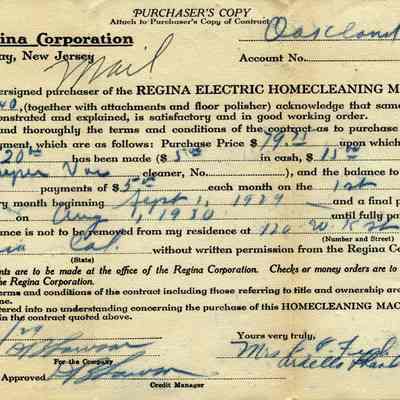 PURCHASER'S COPY
Attach to Purchaser's Copy of Contract
gina Corporation
Oakland
ay, New Jersey
Mail
Account No.
ersigned purchaser of the REGINA ELECTRIC HOMECLEANING MAC
40, (together with attachments and floor polisher) acknowledge that same
onstrated and explained, is satisfactory and in good working order.
and thoroughly the terms and conditions of the contract as to purchase
ment, which are as follows: Purchase Price $79.25 upon which
20 has been made ($5 in cash, $15
Vac cleaner, No. ), and the balance to
payments of $5 each month on the 1st
ry month beginning Sept 1, 1929 and a final p
on Aug 1, 1930 until fully pa
ance is not to be removed from my residence at 120 W
(Number and Street)
Cal. without written permission from the Regina Co
(State)
nts are to be made at the office of the Regina Corporation. Checks or money orders are to
he Regina Corporation.
terms and conditions of the contract including those referring to title and ownership are
me.
tered into no understanding concerning the purchase of this HOMECLEANING MAC
in the contract quoted above.
Yours very truly,
Mrs
For the Company
Approved
Credit Manager